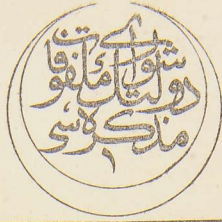 شورای
دولت ملفوفات
مذكره سی
١